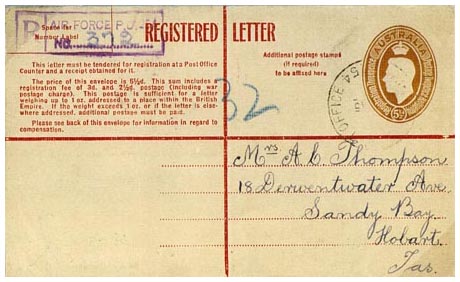 R AIR FORCE P.O.
No. 378
Space for
Number Label
REGISTERED LETTER
This letter must be tendered for registration at a Post Office
Counter and a receipt obtained for it.
The price of this envelope is 5½d. This sum includes a
registration fee of 3d. and 2½d. postage (including war
postage charge). This postage is sufficient for a letter
weighing up to 1 oz. addressed to a place within the British
Empire. If the weight exceeds 1 oz. or if the letter is else-
where addressed, additional postage must be paid.
Please see back of this envelope for information in regard to
compensation.
Additional postage stamps
(if required)
to be affixed here
AUSTRALIA
5½D
OFFICE 54
32
Mrs A C Thompson
18 Derwentwater Ave
Sandy Bay
Hobart.
Tas.